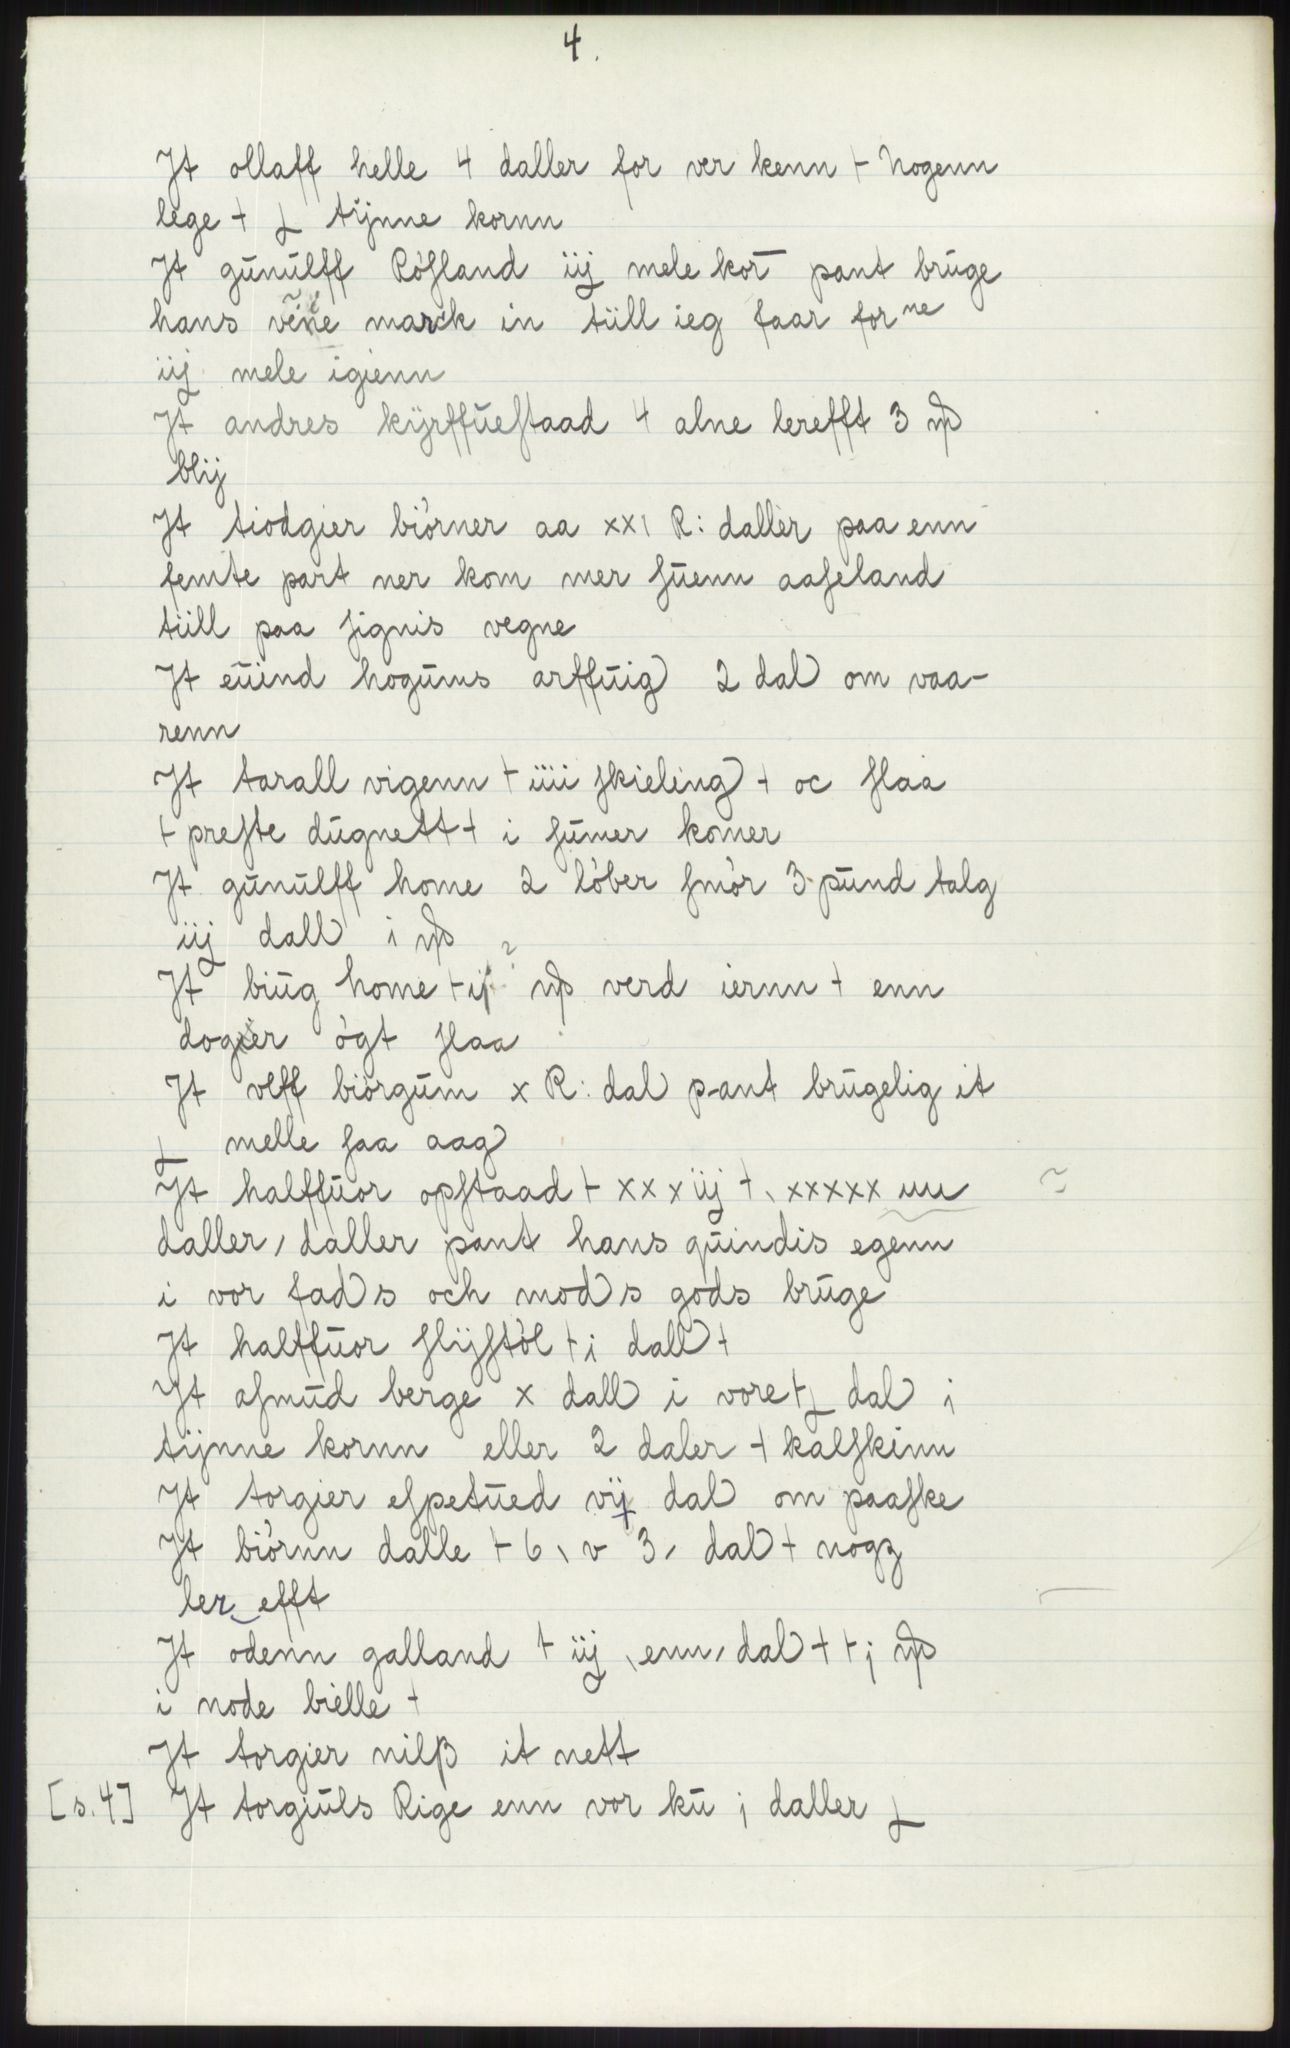 4.
Jt ollaff helle 4 daller for ver kenn + Nogenn
lege + tÿnne kornn
Jt gūnūlff Röſland iij mele kor̄ pant brūge
hans marck in tiill ieg faar for ne
iij mele igienn
Jt andres kÿrffūeſtaad 4 alne lerefft 3
blij
Jt tiodgier biörner aa xxi R: daller paa enn
femte part ner kom mer ſūenn aaſeland
tiill paa ſignis vegne
Jt eūind hogūms arffūig 2 dal om vaa-
renn
Jt tarall vigenn + iiii ſkieling + oc ſlaa
+ preſte dūgnett + i ſūmer komer
Jt gūnūlff home 2 löber ſmör 3 pūnd talg
iij dall i
Jt biūg home + ij ? verd iernn + enn
dogier ögt ſlaa
Jt vlff biörgūm x R: dal pant brūgelig it
melle ſaa aag
Jt halffūor opſtaad + xxxiij +, xxxxx uu
daller, daller pant hans qūindis egenn
i vor fads och mods gods brūge
Jt halffūor ſlÿſtöl + i dall +
Jt aſmūd berge x dall i vore + dal j
tÿnne kornn eller 2 daler + kalſkinn
Jt torgier eſpetūed vij dal om paaſke
Jt biörnn dalle + 6, v 3, dal + nogz
ler efft
Jt odenn galland + iij, enn, dal + + j
i node bielle +
Jt torgier nilβ it nett
[s.4] Jt torgiūls Rige enn vor kū j daller